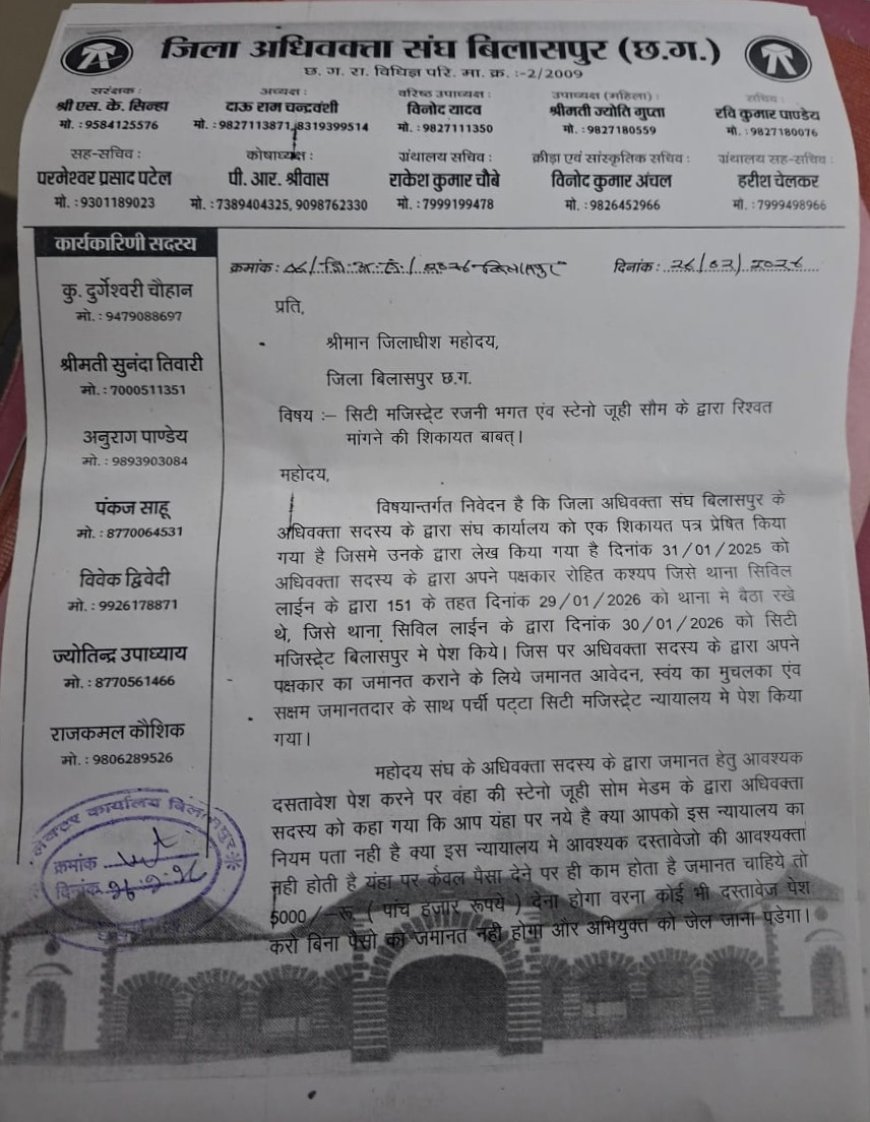 जिला अधिवक्ता संघ बिलासपुर (छ.ग.)
छ. ग. रा. विधिज्ञ परि. मा. क्र. :-2/2009
सरंक्षक :
श्री एस. के. सिन्हा
मो. : 9584125576
अध्यक्ष :
दाऊ राम चन्द्रवंशी
मो. : 9827113871, 8319399514
वरिष्ठ उपाध्यक्ष :
विनोद यादव
मो. : 9827111350
उपाध्यक्ष (महिला) :
श्रीमती ज्योति गुप्ता
मो. : 9827180559
सचिव :
रवि कुमार पाण्डेय
मो. : 9827180076
सह-सचिव :
परमेश्वर प्रसाद पटेल
मो. : 9301189023
कोषाध्यक्ष :
पी. आर. श्रीवास
मो. : 7389404325, 9098762330
ग्रंथालय सचिव :
राकेश कुमार चौबे
मो. : 7999199478
क्रीड़ा एवं सांस्कृतिक सचिव :
विनोद कुमार अंचल
मो. : 9826452966
ग्रंथालय सह-सचिव :
हरीश चेलकर
मो. : 7999498966
कार्यकारिणी सदस्य
कु. दुर्गेश्वरी चौहान
मो. : 9479088697
श्रीमती सुनंदा तिवारी
मो. : 7000511351
अनुराग पाण्डेय
मो. : 9893903084
पंकज साहू
मो. : 8770064531
विवेक द्विवेदी
मो. : 9926178871
ज्योतिन्द्र उपाध्याय
मो. : 8770561466
राजकमल कौशिक
मो. : 9806289526
क्रमांक :
दिनांक :
प्रति,
श्रीमान जिलाधीश महोदय,
जिला बिलासपुर छ.ग.
विषय :– सिटी मजिस्ट्रेट रजनी भगत एंव स्टेनो जूही सौम के द्वारा रिश्वत
मांगने की शिकायत बाबत्।
महोदय,
विषयान्तर्गत निवेदन है कि जिला अधिवक्ता संघ बिलासपुर के
अधिवक्ता सदस्य के द्वारा संघ कार्यालय को एक शिकायत पत्र प्रेषित किया
गया है जिसमे उनके द्वारा लेख किया गया है दिनांक 31/01/2025 को
अधिवक्ता सदस्य के द्वारा अपने पक्षकार रोहित कश्यप जिसे थाना सिविल
लाईन के द्वारा 151 के तहत दिनांक 29/01/2026 को थाना मे बैठा रखे
थे, जिसे थाना सिविल लाईन के द्वारा दिनांक 30/01/2026 को सिटी
मजिस्ट्रेट बिलासपुर मे पेश किये। जिस पर अधिवक्ता सदस्य के द्वारा अपने
पक्षकार का जमानत कराने के लिये जमानत आवेदन, स्वंय का मुचलका एंव
सक्षम जमानतदार के साथ पर्ची पट्टा सिटी मजिस्ट्रेट न्यायालय मे पेश किया
गया।
महोदय संघ के अधिवक्ता सदस्य के द्वारा जमानत हेतु आवश्यक
दसतावेश पेश करने पर वंहा की स्टेनो जूही सोम मेडम के द्वारा अधिवक्ता
सदस्य को कहा गया कि आप यंहा पर नये है क्या आपको इस न्यायालय का
नियम पता नही है क्या इस न्यायालय मे आवश्यक दस्तावेजो की आवश्यक्ता
नही होती है यंहा पर केवल पैसा देने पर ही काम होता है जमानत चाहिये तो
5000/–रू ( पांच हजार रूपये ) देना होगा वरना कोई भी दस्तावेज पेश
करो बिना पैसो का जमानत नही होगा और अभियुक्त को जेल जाना पडेगा।
क्रमांक
दिनांक